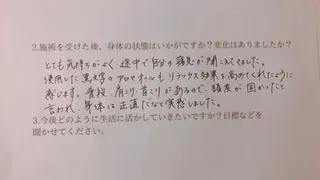 2.施術を受けた後、身体の状態はいかがですか？変化はありましたか？
とても気持ちがよく途中で自分の寝息が聞こえてきました。
使用した黒文字のアロマオイルもリラックス効果を高めてくれたように
感じます。普段、肩こり首こりがあるので、頭皮が固かったと
言われ、身体は正直だなと実感しました。
3.今後どのように生活に活かしていきたいですか？目標などを
聞かせてください。